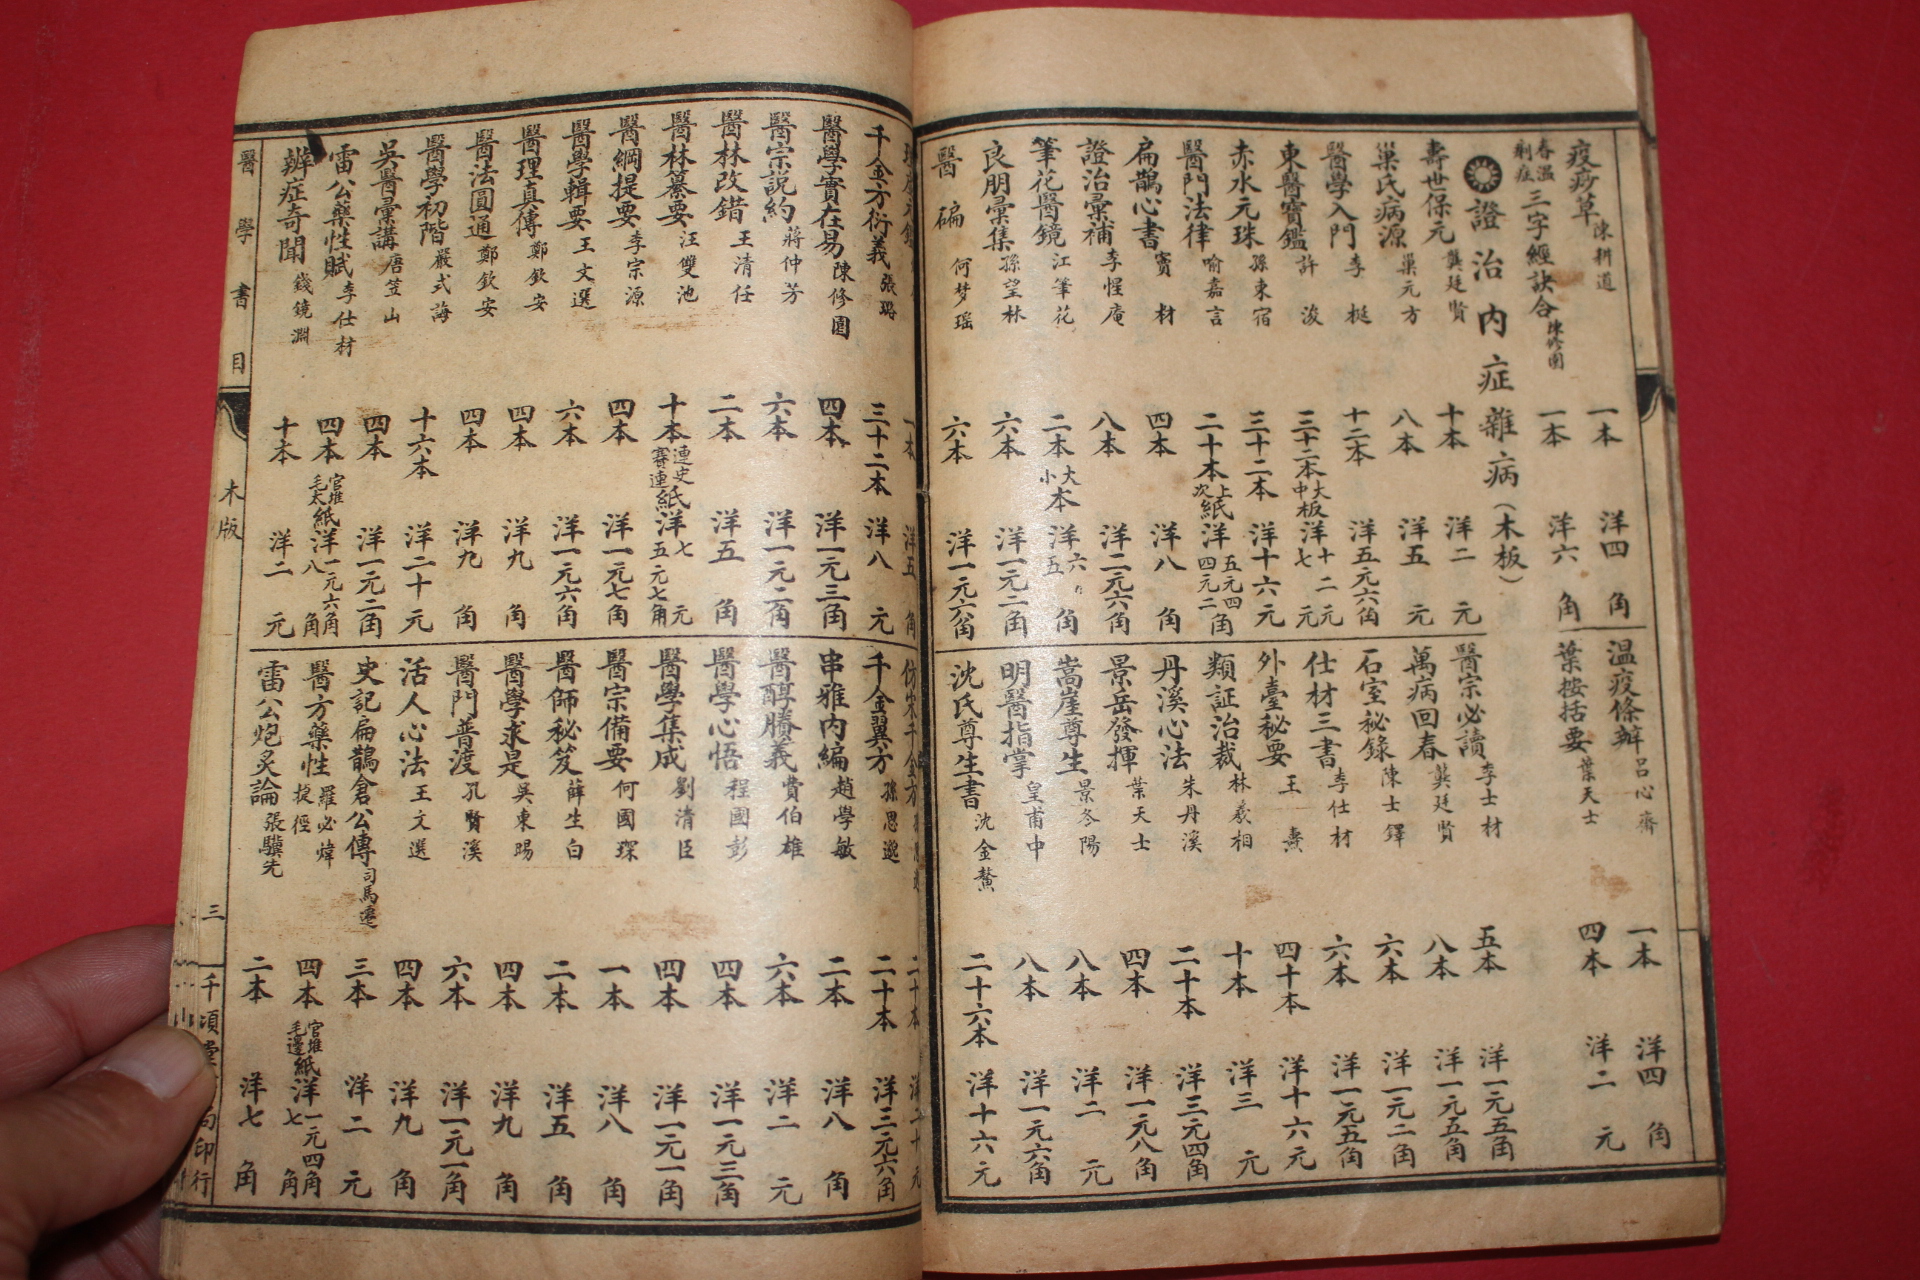 痧疹草 陳耕道 一本 洋四角
春溫剩症三字經訣合 陳修園 一本 洋六角
溫疫條辨 呂心齋 一本 洋四角
葉按括要 葉天士 四本 洋二元
證治內症雜病（木板）
壽世保元 龔廷賢 十本 洋二元
巢氏病源 巢元方 八本 洋五元
醫學入門 李梴 十二本 洋五元六角
東醫寶鑑 許浚 三十二本 大中板 洋十二元七元
赤水元珠 孫東宿 三十二本 洋十六元
醫門法律 喻嘉言 二十本 上次紙 洋五元四四元二角
扁鵲心書 竇材 四本 洋八角
證治彙補 李惺庵 八本 洋二元六角
筆花醫鏡 江筆花 二本 大小本 洋六五角
良朋彙集 孫望林 六本 洋一元二角
醫碥 何梦瑶 六本 洋一元六角
醫宗必讀 李士材 五本 洋一元五角
萬病回春 龔廷賢 八本 洋一元五角
石室秘錄 陳士鐸 六本 洋一元二角
仕材三書 李仕材 六本 洋一元五角
外臺秘要 王燾 四十本 洋十六元
類証治裁 林羲相 十本 洋三元
丹溪心法 朱丹溪 二十本 洋三元四角
景岳發揮 葉天士 四本 洋一元八角
嵩崖尊生 景冬陽 八本 洋二元
明醫指掌 皇甫中 八本 洋一元六角
沈氏尊生書 沈金鰲 二十六本 洋十六元
千金方衍義 張璐 三十二本 洋八元
醫學實在易 陳修園 四本 洋一元三角
醫宗説約 蔣仲芳 六本 洋一元二角
醫林改錯 王清任 二本 洋五角
醫林纂要 汪雙池 十本 連史賽連紙 洋七元五元七角
醫綱提要 李宗源 四本 洋一元七角
醫學輯要 王文選 六本 洋一元六角
醫理真傳 鄭欽安 四本 洋九角
醫法圓通 鄭欽安 四本 洋九角
醫學初階 嚴式誨 十六本 洋二十元
吳醫彙講 唐笠山 四本 洋一元二角
雷公藥性賦 李仕材 四本 官堆毛太紙 洋一元六角八角
辨症奇聞 錢鏡淵 十本 洋二元
千金翼方 孫思邈 二十本 洋三元六角
串雅內編 趙學敏 二本 洋八角
醫醇賸義 費伯雄 六本 洋二元
醫學心悟 程國彭 四本 洋一元三角
醫學集成 劉清臣 四本 洋一元一角
醫宗備要 何國琛 一本 洋八角
醫師秘笈 薛生白 二本 洋五角
醫學求是 吳東暘 四本 洋九角
醫門普渡 孔賢溪 六本 洋一元一角
活人心法 王文選 四本 洋九角
史記扁鵲倉公傳 司馬遷 三本 洋二元
醫方藥性 羅必煒 捷徑 四本 官堆毛邊紙 洋一元四角七角
雷公炮炙論 張驥先 二本 洋七角
醫學書目
木版
三
千頃堂 局印行